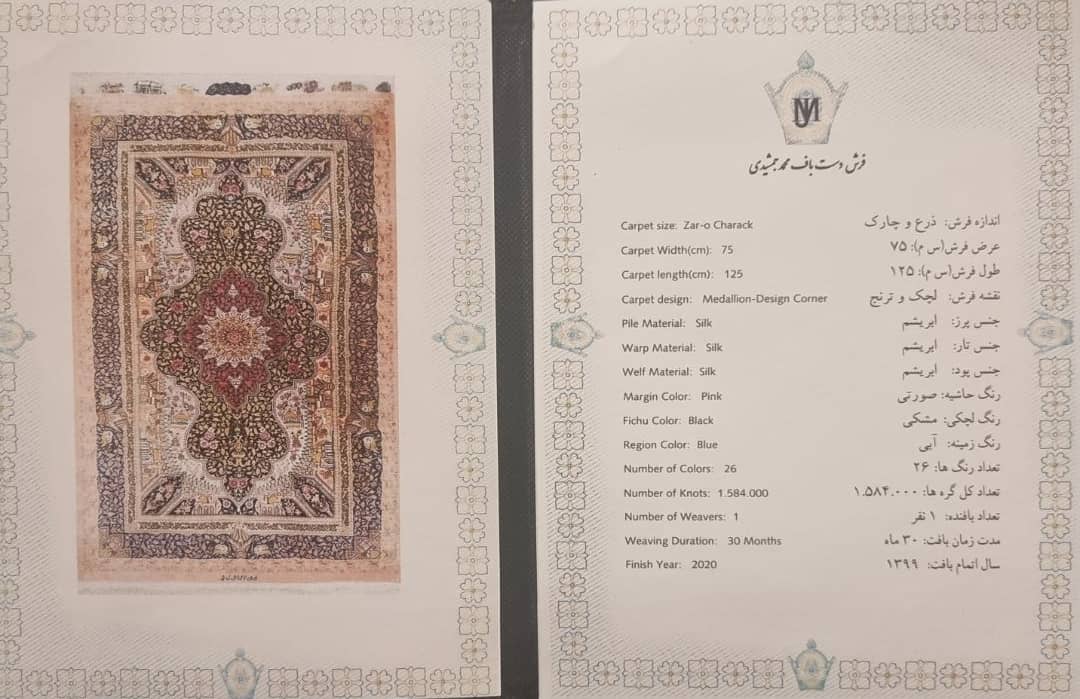 MJ
فرش دست باف محمد جمشیدی
Carpet size: Zar-o Charack اندازه فرش: ذرع و چارک
Carpet Width(cm): 75 عرض فرش(س م): ۷۵
Carpet length(cm): 125 طول فرش(س م): ۱۲۵
Carpet design: Medallion-Design Corner نقشه فرش: لچک و ترنج
Pile Material: Silk جنس پرز: ابریشم
Warp Material: Silk جنس تار: ابریشم
Welf Material: Silk جنس پود: ابریشم
Margin Color: Pink رنگ حاشیه: صورتی
Fichu Color: Black رنگ لچکی: مشکی
Region Color: Blue رنگ زمینه: آبی
Number of Colors: 26 تعداد رنگ ها: ۲۶
Number of Knots: 1.584.000 تعداد کل گره ها: ۱.۵۸۴.۰۰۰
Number of Weavers: 1 تعداد بافنده: ۱ نفر
Weaving Duration: 30 Months مدت زمان بافت: ۳۰ ماه
Finish Year: 2020 سال اتمام بافت: ۱۳۹۹